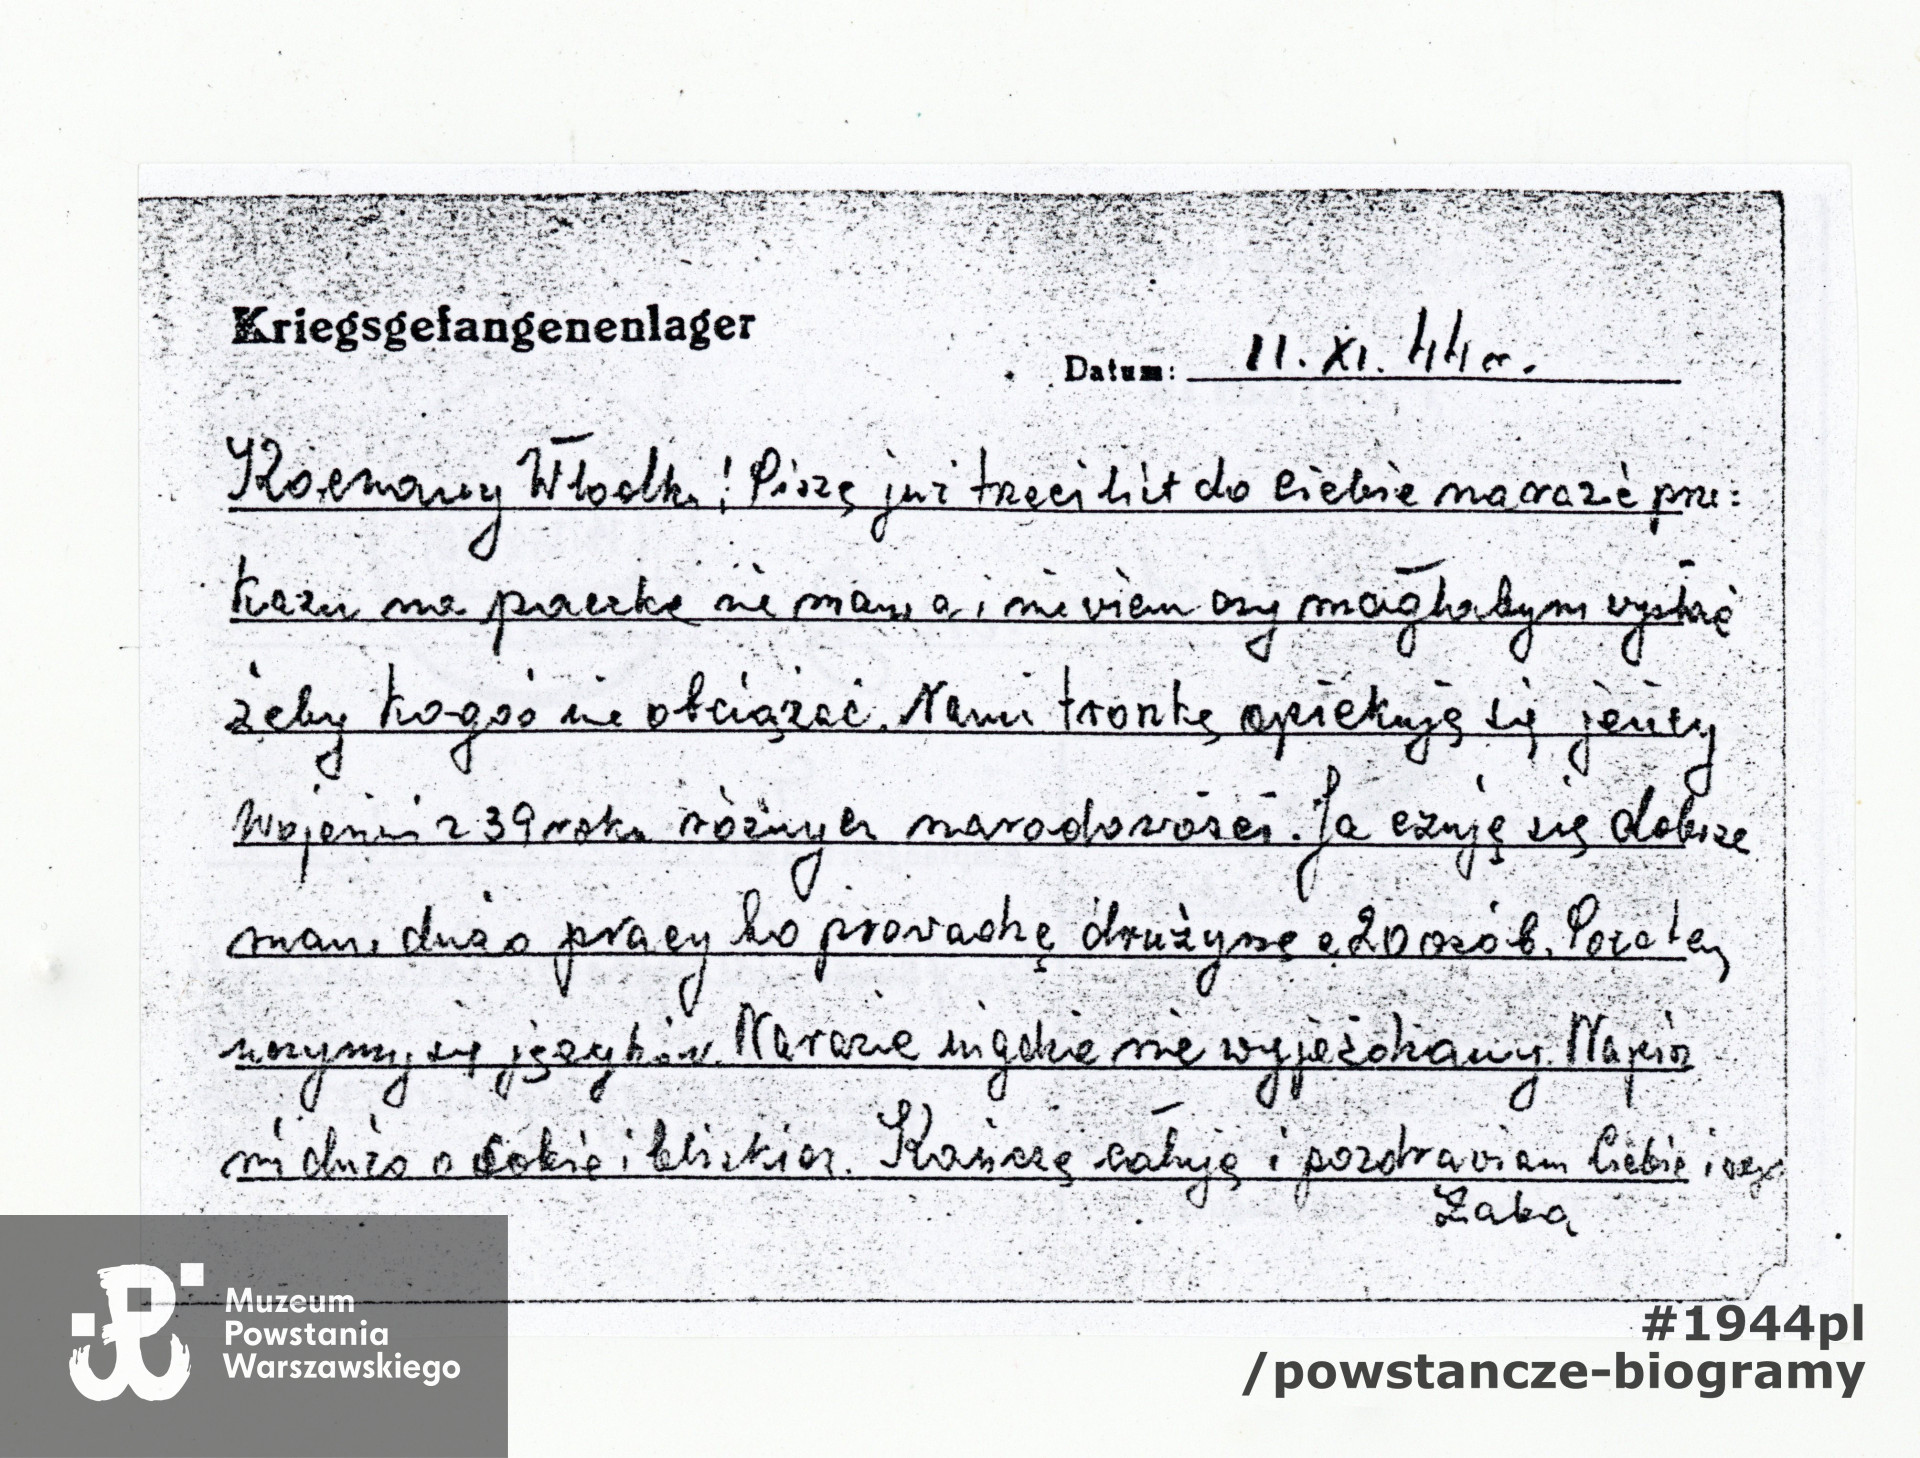 Kriegsgefangenenlager
Datum: 11. XI. 44 r.
Kochany Włodku! Piszę już trzeci list do Ciebie narazie prze:
kazu na paczkę nie mam, a i nie wiem czy mogłabym wysłać
żeby kogoś nie obciążać. Nami troszkę opiekują się jeńcy
wojenni z 39 roku różnych narodowości. Ja czuję się dobrze
mam dużo pracy bo prowadzę drużynę 20 osób. Poza tem
uczymy się języków. Narazie nigdzie nie wyjeżdżamy. Napisz
mi dużo o sobie i bliskich. Kończę całuję i pozdrawiam Ciebie i
Żaba
Muzeum
Powstania
Warszawskiego
#1944pl
/powstancze-biogramy